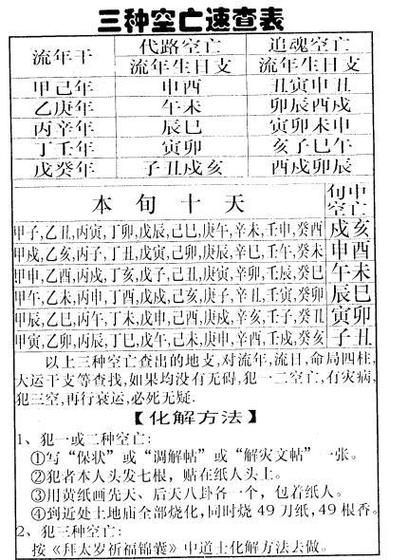 三种空亡速查表
流年干 代路空亡 追魂空亡
流年生日支 流年生日支
甲己年 申酉 丑寅申丑
乙庚年 午未 卯辰酉戌
丙辛年 辰巳 寅卯未申
丁壬年 寅卯 亥子巳午
戊癸年 子丑戌亥 酉戌卯辰
本旬十天 旬中空亡
甲子,乙丑,丙寅,丁卯,戊辰,己巳,庚午,辛未,壬申,癸酉 戌亥
甲戌,乙亥,丙子,丁丑,戊寅,己卯,庚辰,辛巳,壬午,癸未 申酉
甲申,乙酉,丙戌,丁亥,戊子,己丑,庚寅,辛卯,壬辰,癸巳 午未
甲午,乙未,丙申,丁酉,戊戌,己亥,庚子,辛丑,壬寅,癸卯 辰巳
甲辰,乙巳,丙午,丁未,戊申,己酉,庚戌,辛亥,壬子,癸丑 寅卯
甲寅,乙卯,丙辰,丁巳,戊午,己未,庚申,辛酉,壬戌,癸亥 子丑
以上三种空亡查出的地支,对流年,流日,命局四柱,
大运干支等查找,如果均没有无碍,犯一二空亡,有灾病,
犯三空,再行衰运,必死无疑.
【化解方法】
1、犯一或二种空亡:
①写“保状”或“调解帖”或“解灾文帖”一张。
②犯者本人头发七根，贴在纸人头上。
③用黄纸画先天、后天八卦各一个，包着纸人。
④到近处土地庙全部烧化，同时烧49刀纸，49根香。
2、犯三种空亡:
按《拜太岁祈福锦囊》中道士化解方法去做。